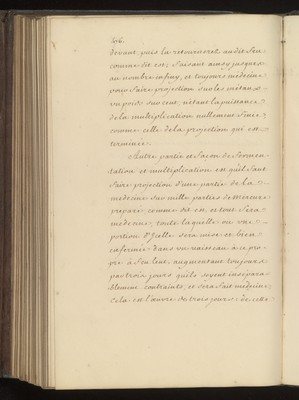 306.
devant, puis la retourneras audit feu
comme dit est, faisant ainsy jusques
au nombre infiny, et toujours medecine
pour faire projection sur les metaux
un poids sur cent, n'étant la puissance
de la multiplication nullement finie,
comme celle de la projection qui est
terminée.
Autre partie et façon de fermen-
tation et multiplication est qu'il faut
faire projection d'une partie de la
medecine sur mille parties de Mercure
preparé, comme dit est, et tout sera
medecine; toute laquelle ou une
portion d'jcelle sera mise et bien
enfermée dans un vaisseau à ce pro-
pre à feu lent, augmentant toujours
par trois jours qu'ils soyent insepara-
blement contraints, et sera fait medecine;
cela est l'œuvre de trois jours; de cette